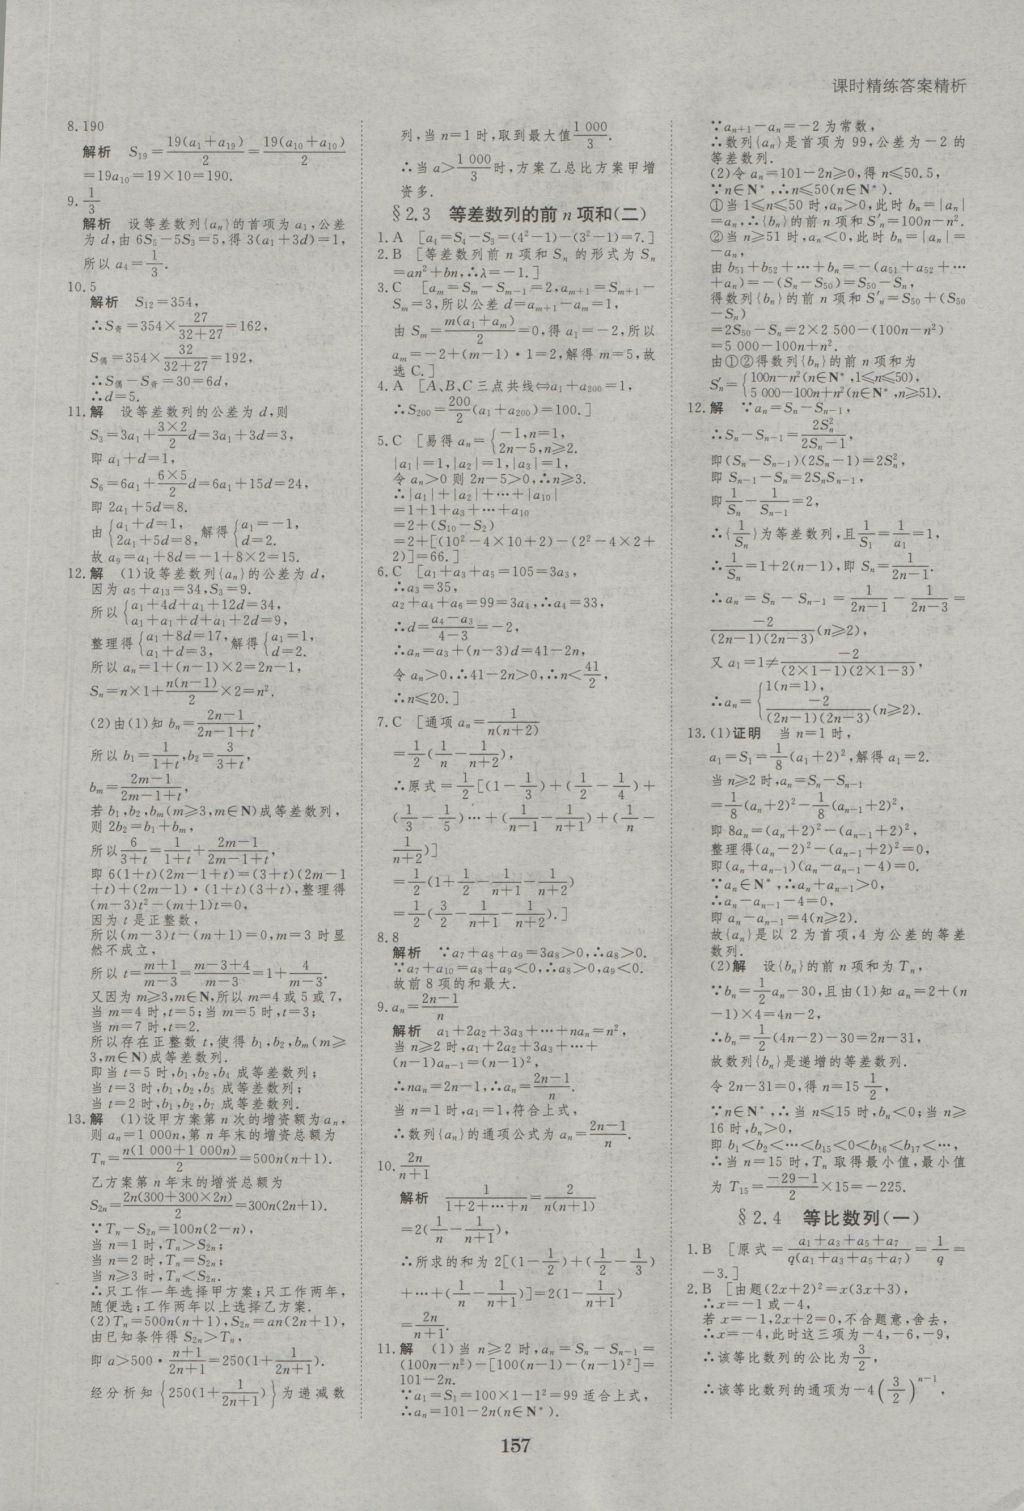 课时精练答案精析
8.190
解析 S₁₉=19(a₁+a₁₉)/2=19(a₁₀+a₁₀)/2
=19a₁₀=19×10=190.
9.1/3
解析 设等差数列{aₙ}的首项为a₁,公差
为d,由6S₅-5S₃=5,得3(a₁+3d)=1,
所以a₄=1/3.
10.5
解析 S₁₂=354,
∴S奇=354×27/(32+27)=162,
S偶=354×32/(32+27)=192,
∴S偶-S奇=30=6d,
∴d=5.
11.解 设等差数列的公差为d,则
S₃=3a₁+(3×2)/2d=3a₁+3d=3,
即a₁+d=1,
S₆=6a₁+(6×5)/2d=6a₁+15d=24,
即2a₁+5d=8.
由{a₁+d=1, 2a₁+5d=8, 解得{a₁=-1, d=2.
故a₉=a₁+8d=-1+8×2=15.
12.解 (1)设等差数列{aₙ}的公差为d,
因为a₅+a₁₃=34,S₃=9.
所以{a₁+4d+a₁+12d=34, a₁+a₁+d+a₁+2d=9,
整理得{a₁+8d=17, a₁+d=3, 解得{a₁=1, d=2.
所以aₙ=1+(n-1)×2=2n-1,
Sₙ=n×1+n(n-1)/2×2=n².
(2)由(1)知bₙ=(2n-1)/(2n-1+t),
所以b₁=1/(1+t),b₂=3/(3+t),
bₘ=(2m-1)/(2m-1+t),
若b₁,b₂,bₘ(m≥3,m∈N)成等差数列,
则2b₂=b₁+bₘ,
所以6/(3+t)=1/(1+t)+(2m-1)/(2m-1+t),
即6(1+t)(2m-1+t)=(3+t)(2m-1
+t)+(2m-1)·(1+t)(3+t),整理得
(m-3)t²-(m+1)t=0,
因为t是正整数,
所以(m-3)t-(m+1)=0,m=3时显
然不成立,
所以t=(m+1)/(m-3)=(m-3+4)/(m-3)=1+4/(m-3).
又因为m≥3,m∈N,所以m=4或5或7,
当m=4时,t=5;当m=5时,t=3;
当m=7时,t=2.
所以存在正整数t,使得b₁,b₂,bₘ(m≥
3,m∈N)成等差数列.
即当t=5时,b₁,b₂,b₄成等差数列;
当t=3时,b₁,b₂,b₅成等差数列;
当t=2时,b₁,b₂,b₇成等差数列.
13.解 (1)设甲方案第n次的增资额为aₙ,
则aₙ=1 000n,第n年末的增资总额为
Tₙ=n(1 000+1 000n)/2=500n(n+1).
乙方案第n年末的增资总额为
S₂ₙ=2n(300+300×2n)/2=300n(2n+1).
∵Tₙ-S₂ₙ=100n(2-n),
当n=1时,Tₙ>S₂ₙ;
当n=2时,Tₙ=S₂ₙ;
当n≥3时,Tₙ<S₂ₙ.
∴只工作一年选择甲方案;只工作两年,
随便选;工作两年以上选择乙方案.
(2)Tₙ=500n(n+1),S₂ₙ=an(2n+1),
由已知条件得S₂ₙ>Tₙ,
即a>500·(n+1)/(2n+1)=250(1+1/(2n+1)).
经分析知{250(1+1/(2n+1))}为递减数
列,当n=1时,取到最大值1 000/3.
∴当a>1 000/3时,方案乙总比方案甲增
资多.
§2.3 等差数列的前n项和(二)
1.A [a₄=S₄-S₃=(4²-1)-(3²-1)=7.]
2.B [等差数列前n项和Sₙ的形式为Sₙ
=an²+bn,∴λ=-1.]
3.C [aₘ=Sₘ-Sₘ₋₁=2,aₘ₊₁=Sₘ₊₁-
Sₘ=3,所以公差d=aₘ₊₁-aₘ=1,
由Sₘ=m(a₁+aₘ)/2=0,得a₁=-2,所以
aₘ=-2+(m-1)·1=2,解得m=5,故
选C.]
4.A [A、B、C三点共线⇔a₁+a₂₀₀=1,
∴S₂₀₀=200/2(a₁+a₂₀₀)=100.]
5.C [易得aₙ={-1,n=1, 2n-5,n≥2.
|a₁|=1,|a₂|=1,|a₃|=1,
令aₙ>0则2n-5>0,∴n≥3.
∴|a₁|+|a₂|+⋯+|a₁₀|
=1+1+a₃+⋯+a₁₀
=2+(S₁₀-S₂)
=2+[(10²-4×10+2)-(2²-4×2+
2)]=66.]
6.C [a₁+a₃+a₅=105=3a₃,
∴a₃=35,
a₂+a₄+a₆=99=3a₄,∴a₄=33,
∴d=(a₄-a₃)/(4-3)=-2,
∴aₙ=a₃+(n-3)d=41-2n,
令aₙ>0,∴41-2n>0,∴n<41/2,
∴n≤20.]
7.C [通项aₙ=1/(n(n+2))
=1/2(1/n-1/(n+2)),
∴原式=1/2[(1-1/3)+(1/2-1/4)+
(1/3-1/5)⋯+(1/(n-1)-1/(n+1))+(1/n-
1/(n+2))]
=1/2(1+1/2-1/(n+1)-1/(n+2))
=1/2(3/2-1/(n+1)-1/(n+2)).]
8.8
解析 ∵a₇+a₈+a₉=3a₈>0,∴a₈>0.
∵a₇+a₁₀=a₈+a₉<0,∴a₈>0,a₉<0.
故前8项的和最大.
9.aₙ=(2n-1)/n
解析 a₁+2a₂+3a₃+⋯+naₙ=n²,
当n≥2时,a₁+2a₂+3a₃+⋯+
(n-1)aₙ₋₁=(n-1)²,
∴naₙ=2n-1,∴aₙ=(2n-1)/n.
当n=1时,a₁=1,符合上式,
∴数列{aₙ}的通项公式为aₙ=(2n-1)/n.
10.2n/(n+1)
解析 1/(1+2+⋯+n)=2/(n(n+1))
=2(1/n-1/(n+1)),
∴所求的和为2[(1-1/2)+(1/2-1/3)
+⋯+(1/n-1/(n+1))]=2(1-1/(n+1))
=2n/(n+1).
11.解 (1)当n≥2时,aₙ=Sₙ-Sₙ₋₁=
(100n-n²)-[100(n-1)-(n-1)²]=
101-2n.
∵a₁=S₁=100×1-1²=99适合上式,
∴aₙ=101-2n(n∈N*).
∵aₙ₊₁-aₙ=-2为常数,
∴数列{aₙ}是首项为99,公差为-2的
等差数列.
(2)令aₙ=101-2n≥0,得n≤50.5,
∵n∈N*,∴n≤50(n∈N*).
①当1≤n≤50时,aₙ>0,此时bₙ=|aₙ|
=aₙ,∴{bₙ}的前n项和S′ₙ=100n-n².
②当n≥51时,aₙ<0,此时bₙ=|aₙ|=
-aₙ,
由b₅₁+b₅₂+⋯+bₙ=-(a₅₁+a₅₂+⋯
+aₙ)=-(Sₙ-S₅₀)=S₅₀-Sₙ,
得数列{bₙ}的前n项和S′ₙ=S₅₀+(S₅₀
-Sₙ)
=2S₅₀-Sₙ=2×2 500-(100n-n²)
=5 000-100n+n².
由①②得数列{bₙ}的前n项和为
S′ₙ={100n-n²(n∈N*,1≤n≤50), 5 000-100n+n²(n∈N*,n≥51).
12.解 ∵aₙ=Sₙ-Sₙ₋₁,
∴Sₙ-Sₙ₋₁=2Sₙ²/(2Sₙ-1),
即(Sₙ-Sₙ₋₁)(2Sₙ-1)=2Sₙ²,
即Sₙ₋₁-Sₙ=2SₙSₙ₋₁,
即1/Sₙ-1/Sₙ₋₁=2,
∴{1/Sₙ}为等差数列,且1/S₁=1/a₁=1,
∴1/Sₙ=1+2(n-1),即Sₙ=1/(2n-1).
∴aₙ=Sₙ-Sₙ₋₁=1/(2n-1)-1/(2n-3)=
-2/((2n-1)(2n-3))(n≥2),
又a₁=1≠-2/((2×1-1)(2×1-3)),
∴aₙ={1(n=1), -2/((2n-1)(2n-3))(n≥2).
13.(1)证明 当n=1时,
a₁=S₁=1/8(a₁+2)²,解得a₁=2.
当n≥2时,aₙ=Sₙ-Sₙ₋₁
=1/8(aₙ+2)²-1/8(aₙ₋₁+2)²,
即8aₙ=(aₙ+2)²-(aₙ₋₁+2)²,
整理得(aₙ-2)²-(aₙ₋₁+2)²=0,
即(aₙ+aₙ₋₁)(aₙ-aₙ₋₁-4)=0.
∵aₙ∈N*,∴aₙ+aₙ₋₁>0,
∴aₙ-aₙ₋₁-4=0,
即aₙ-aₙ₋₁=4(n≥2).
故{aₙ}是以2为首项,4为公差的等差
数列.
(2)解 设{bₙ}的前n项和为Tₙ,
∵bₙ=1/2aₙ-30,且由(1)知aₙ=2+(n
-1)×4=4n-2,
∴bₙ=1/2(4n-2)-30=2n-31,
故数列{bₙ}是递增的等差数列.
令2n-31=0,得n=15 1/2,
∵n∈N*,∴当n≤15时,bₙ<0;当n≥
16时,bₙ>0,
即b₁<b₂<⋯<b₁₅<0<b₁₆<b₁₇<⋯,
∴当n=15时,Tₙ取得最小值,最小值
为T₁₅=(-29-1)/2×15=-225.
§2.4 等比数列(一)
1.B [原式=(a₁+a₃+a₅+a₇)/(q(a₁+a₃+a₅+a₇))=1/q=
-3.]
2.B [由题(2x+2)²=x(3x+3),
∴x=-1或-4,
若x=-1,2x+2=0,不合题意,舍去,
∴x=-4,此时这三项为-4,-6,-9,
∴该等比数列的公比为3/2,
∴该等比数列的通项为-4(3/2)ⁿ⁻¹,
157